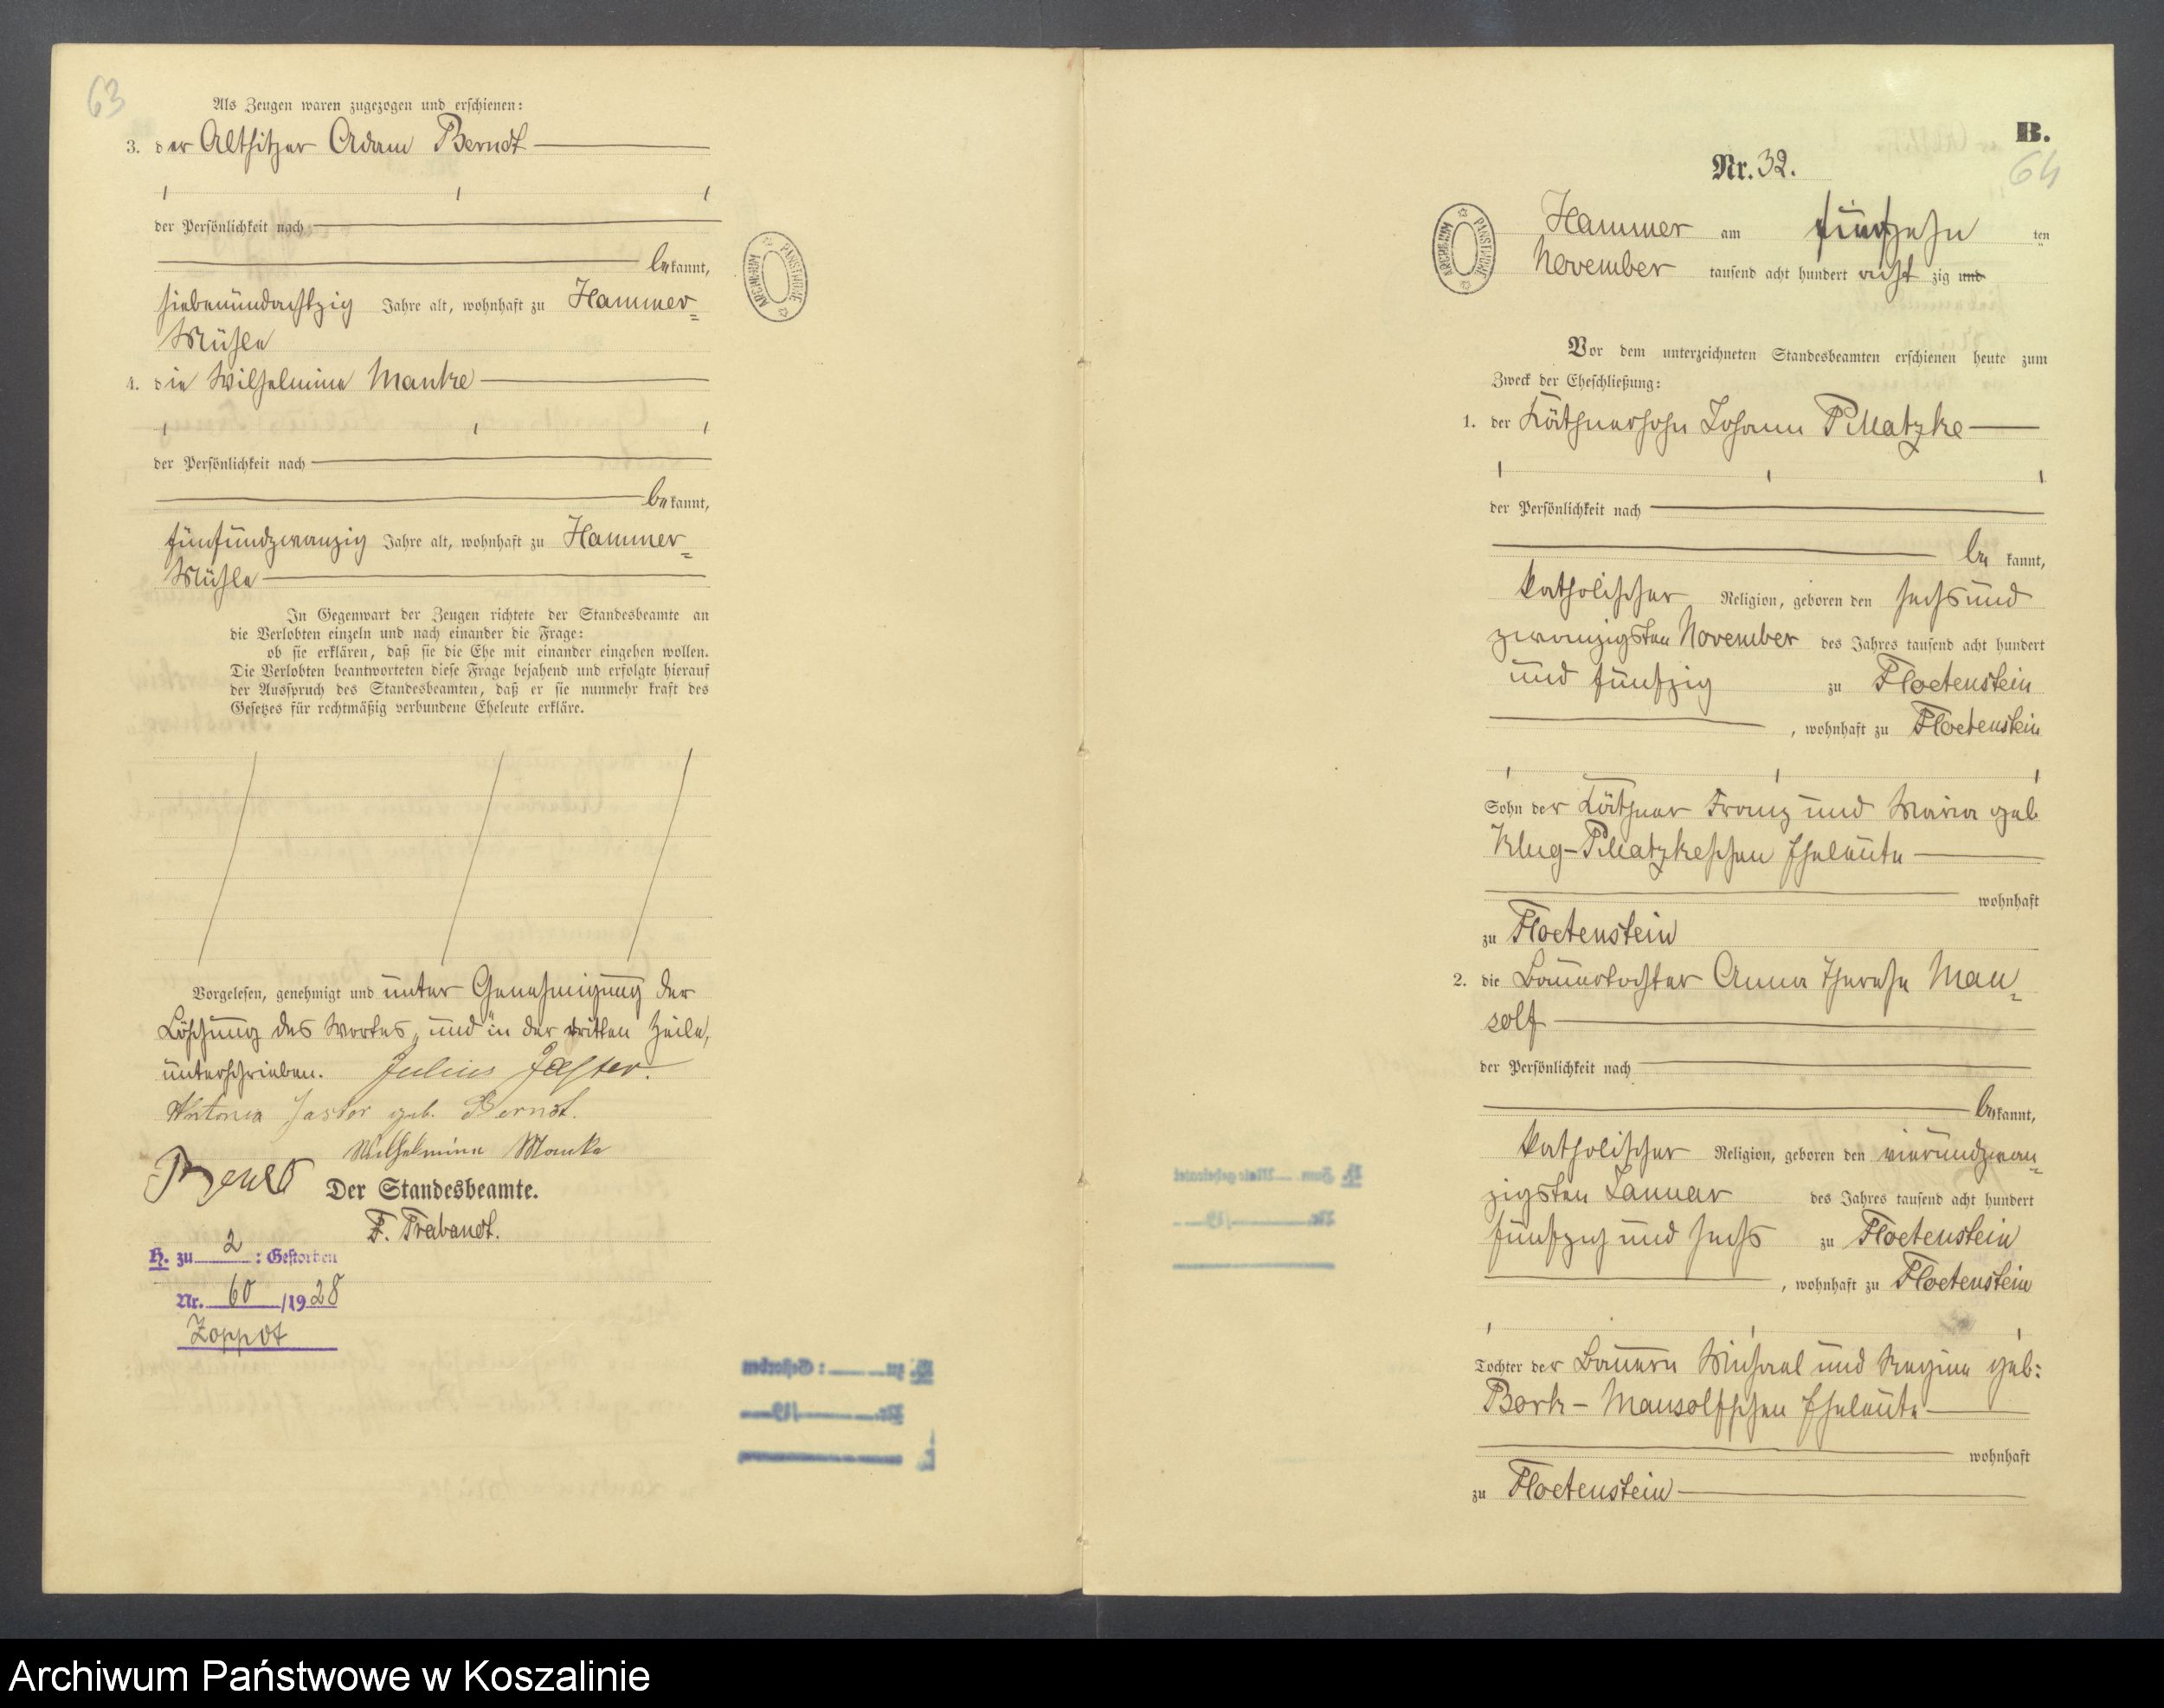 63
Als Zeugen waren zugezogen und erschienen:
3. der Altsitzer Adam Berndt
der Persönlichkeit nach
bekannt,
siebenundachtzig Jahre alt, wohnhaft zu Hammer=
Mühle
4. die Wilhelmine Manke
der Persönlichkeit nach
bekannt,
fünfundzwanzig Jahre alt, wohnhaft zu Hammer=
Mühle
In Gegenwart der Zeugen richtete der Standesbeamte an
die Verlobten einzeln und nach einander die Frage:
ob sie erklären, daß sie die Ehe mit einander eingehen wollen.
Die Verlobten beantworteten diese Frage bejahend und erfolgte hierauf
der Ausspruch des Standesbeamten, daß er sie nunmehr kraft des
Gesetzes für rechtmäßig verbundene Eheleute erkläre.
Vorgelesen, genehmigt und unter Genehmigung der
Löschung des Wortes „und" in der dritten Zeile,
unterschrieben. Julius Jaster.
Antonia Jaster geb. Berndt.
Wilhelmine Manke
Der Standesbeamte.
F. Trabandt.
H. zu 2 : Gestorben
Nr. 60 /1928
Zoppot
ARCHIWUM PAŃSTWOWE
B.
64
Nr. 32.
ARCHIWUM PAŃSTWOWE
Hammer am fünfzehn ten
November tausend acht hundert acht zig und
Vor dem unterzeichneten Standesbeamten erschienen heute zum
Zweck der Eheschließung:
1. der Käthnersohn Johann Pillatzke
der Persönlichkeit nach
be kannt,
katholischer Religion, geboren den sechsund
zwanzigsten November des Jahres tausend acht hundert
und fünfzig zu Floetenstein
, wohnhaft zu Floetenstein
Sohn der Käthner Franz und Maria geb
Klug-Pillatzkeschen Eheleute
wohnhaft
zu Floetenstein
2. die Bauertochter Anna Therese Man=
solf
der Persönlichkeit nach
bekannt,
katholischer Religion, geboren den vierundzwan=
zigsten Januar des Jahres tausend acht hundert
fünfzig und sechs zu Floetenstein
, wohnhaft zu Floetenstein
Tochter der Bauern Michael und Regine geb:
Bork - Mansolfschen Eheleute
wohnhaft
zu Floetenstein
Archiwum Państwowe w Koszalinie